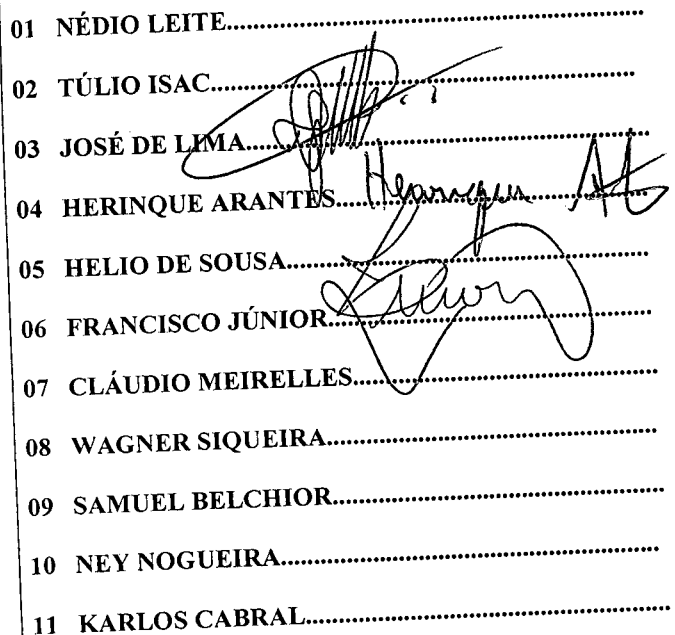 01 NÉDIO LEITE..........................................................
02 TÚLIO ISAC............................................................
03 JOSÉ DE LIMA........................................................
04 HERINQUE ARANTES............................................
05 HELIO DE SOUSA...................................................
06 FRANCISCO JÚNIOR.............................................
07 CLÁUDIO MEIRELLES..........................................
08 WAGNER SIQUEIRA...............................................
09 SAMUEL BELCHIOR..............................................
10 NEY NOGUEIRA.....................................................
11 KARLOS CABRAL.................................................